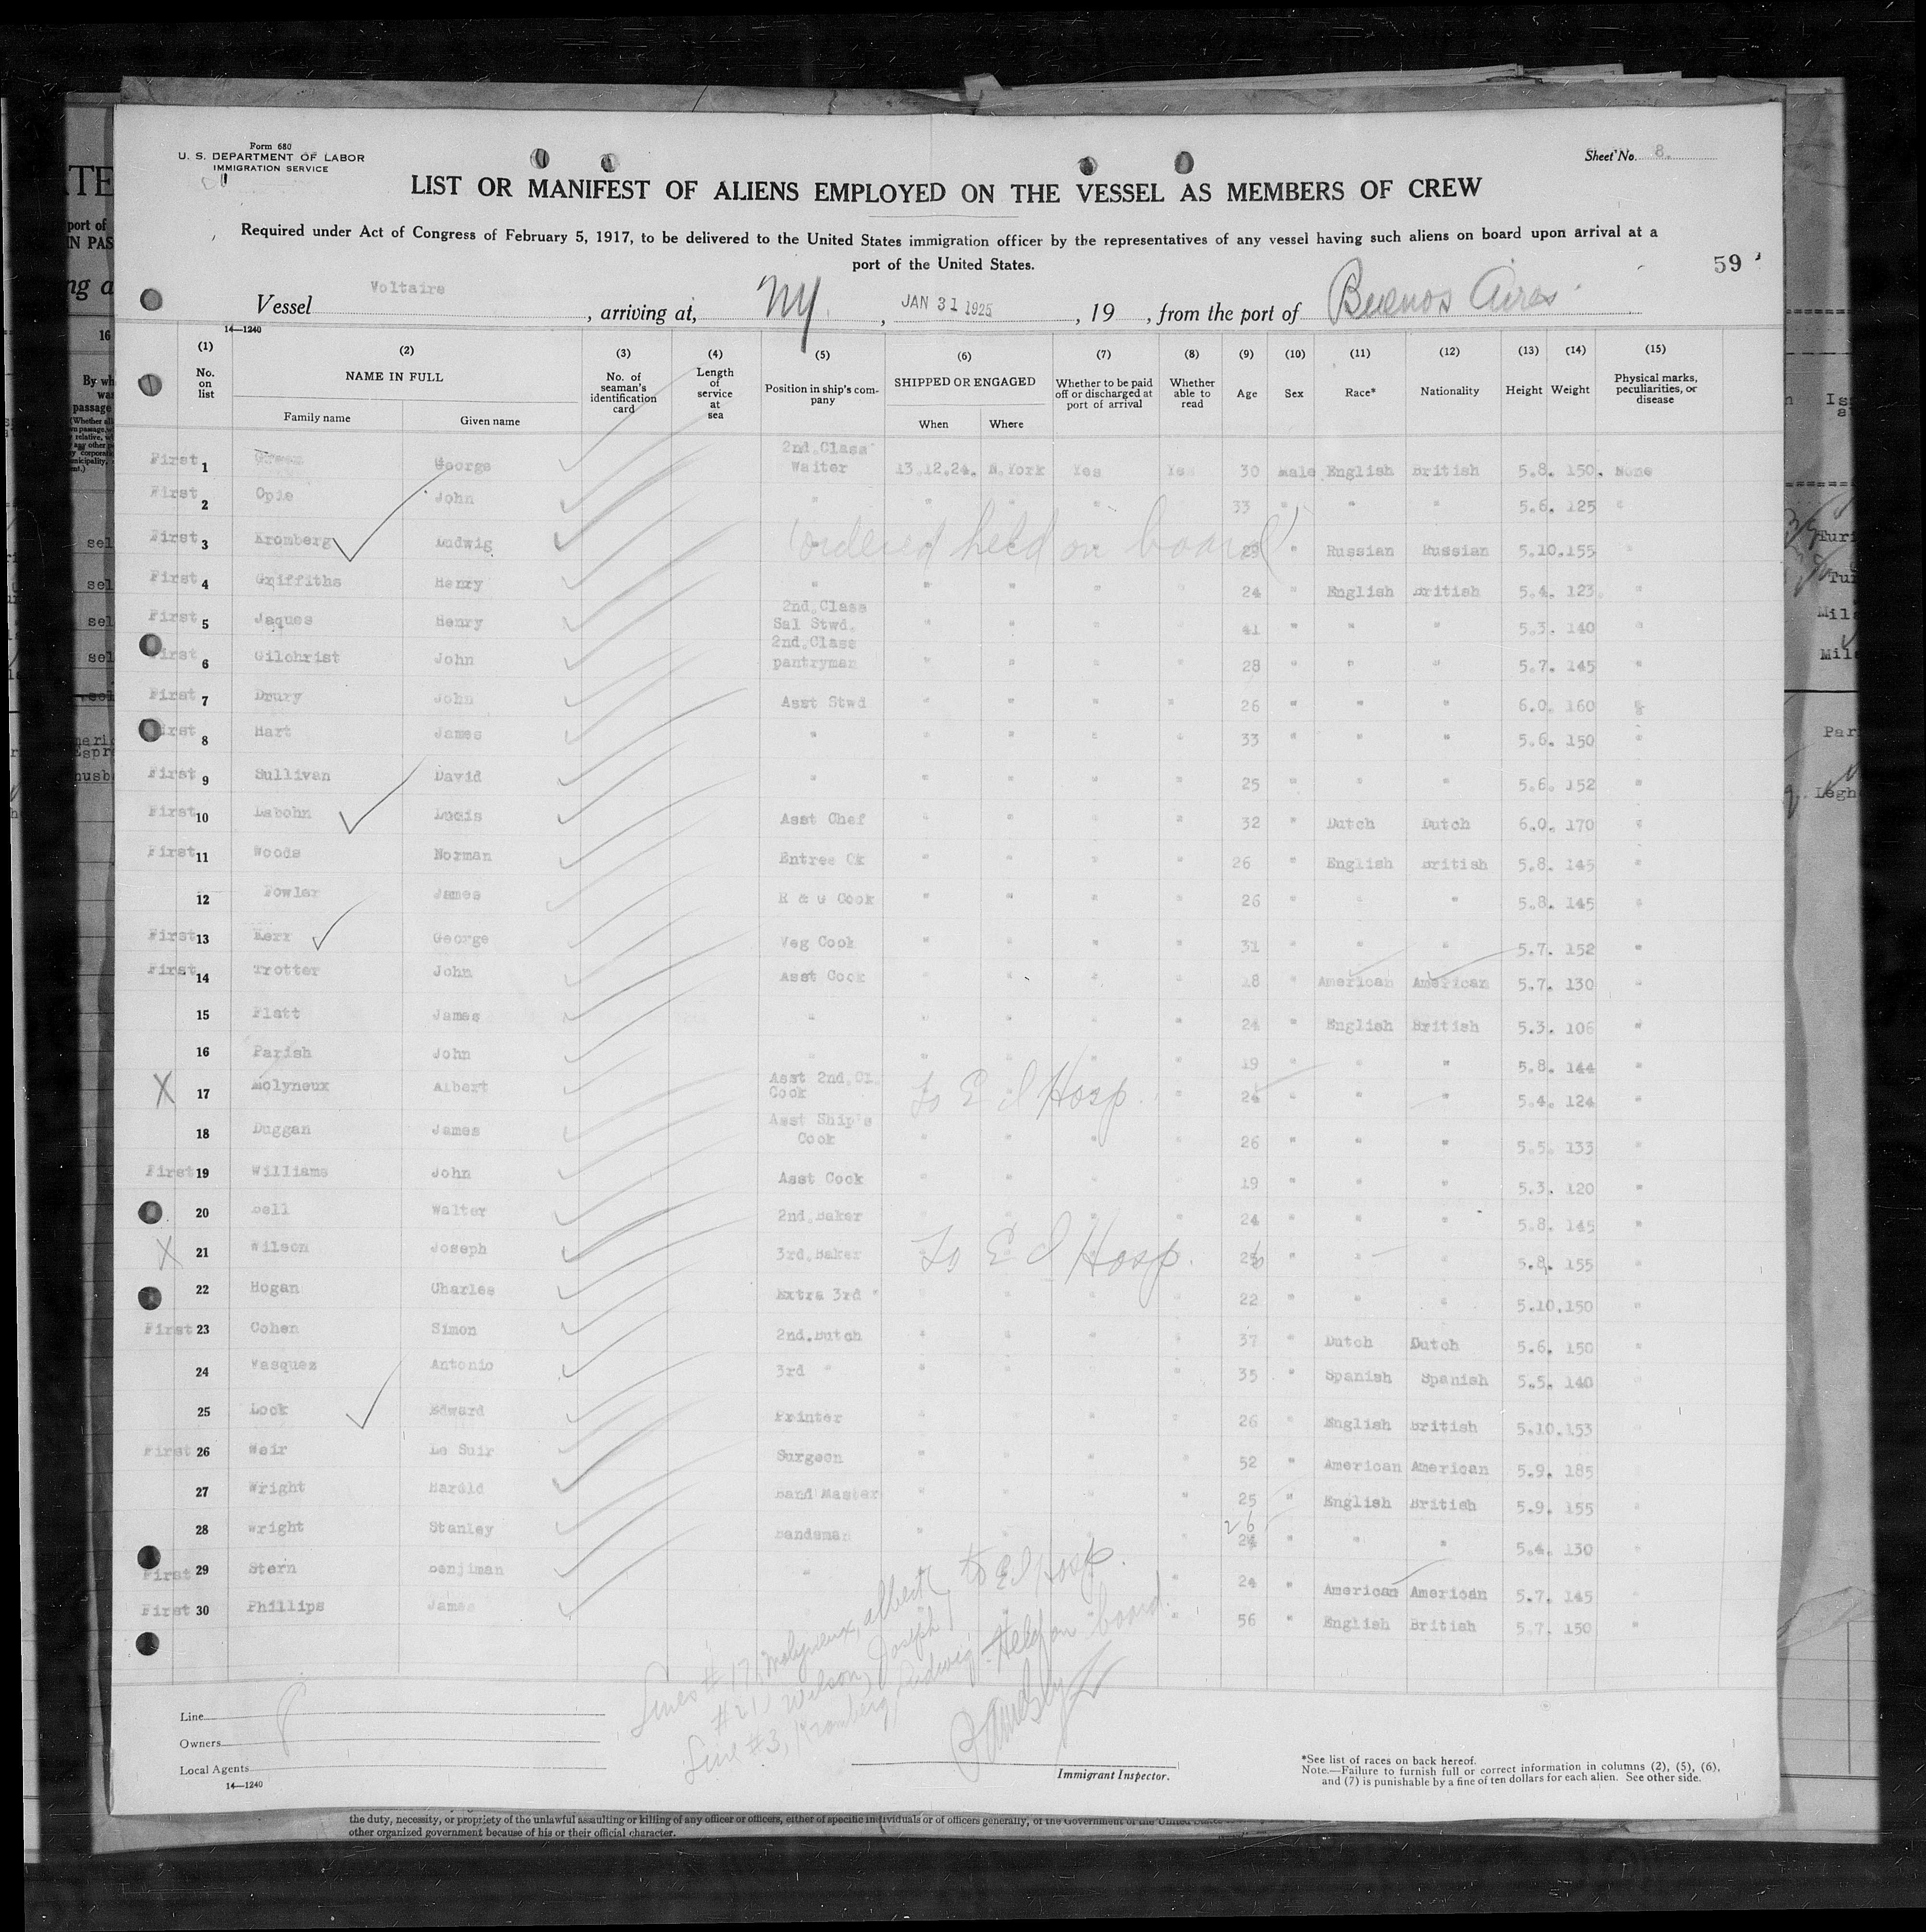 Form 680
U. S. DEPARTMENT OF LABOR
IMMIGRATION SERVICE
Sheet No. 8.
LIST OR MANIFEST OF ALIENS EMPLOYED ON THE VESSEL AS MEMBERS OF CREW
Required under Act of Congress of February 5, 1917, to be delivered to the United States immigration officer by the representatives of any vessel having such aliens on board upon arrival at a
port of the United States.
59
Vessel Voltaire, arriving at, NY, JAN 31 1925, 19 , from the port of Buenos Aires
14—1240
(1) (2) (3) (4) (5) (6) (7) (8) (9) (10) (11) (12) (13) (14) (15)
No. on list NAME IN FULL No. of seaman's identification card Length of service at sea Position in ship's company SHIPPED OR ENGAGED Whether to be paid off or discharged at port of arrival Whether able to read Age Sex Race* Nationality Height Weight Physical marks, peculiarities, or disease
Family name Given name When Where
First 1 George 2nd.Class Waiter 13.12.24. N.York Yes Yes 30 male English British 5.8. 150. None
First 2 Opie John " " " " " 33 " " " 5.6. 125 "
First 3 Kromberg Ludwig " (ordered held on board) " Russian Russian 5.10.155 "
First 4 Griffiths Henry " " " " " 24 " English British 5.4. 123. "
First 5 Jaques Henry 2nd.Class Sal Stwd. " " " " 41 " " " 5.3. 140 "
First 6 Gilchrist John 2nd.Class pantryman " " " " 28 " " " 5.7. 145 "
First 7 Drury John Asst Stwd " " " " 26 " " " 6.0. 160 "
First 8 Hart James " " " " " 33 " " " 5.6. 150 "
First 9 Sullivan David " " " " " 25 " " " 5.6. 152 "
First 10 Labohn Louis Asst Chef " " " " 32 " Dutch Dutch 6.0. 170 "
First 11 Woods Norman Entree Ck " " " " 26 " English British 5.8. 145 "
12 Fowler James R & G Cook " " " " 26 " " " 5.8. 145 "
First 13 Kerr George Veg Cook " " " " 31 " " " 5.7. 152 "
First 14 Trotter John Asst Cook " " " " 18 " American American 5.7. 130 "
15 Platt James " " " " " 24 " English British 5.3. 106 "
16 Parish John " " " " " 19 " " " 5.8. 144 "
X 17 Molyneux Albert Asst 2nd.Cl. Cook To E I Hosp. " 24 " " " 5.4. 124 "
18 Duggan James Asst Ship's Cook " " " " 26 " " " 5.5. 133 "
First 19 Williams John Asst Cook " " " " 19 " " " 5.3. 120 "
20 Bell Walter 2nd.Baker " " " " 24 " " " 5.8. 145 "
X 21 Wilson Joseph 3rd.Baker To E I Hosp. 26 " " " 5.8. 155 "
22 Hogan Charles Extra 3rd " " " " " 22 " " " 5.10.150 "
First 23 Cohen Simon 2nd.Butch " " " " 37 " Dutch Dutch 5.6. 150 "
24 Vasquez Antonio 3rd " " " " 35 " Spanish Spanish 5.5. 140 "
25 Lock Edward Printer " " " " 26 " English British 5.10.153 "
First 26 Weir Le Suir Surgeon " " " " 52 " American American 5.9. 185
27 Wright Harold Band Master " " " " 25 " English British 5.9. 155 "
28 Wright Stanley Bandsman " " " " 26 24 " " " 5.4. 130 "
First 29 Stern Benjiman " " 24 " American American 5.7. 145 "
First 30 Phillips James " 56 " English British 5.7. 150 "
Lines #17, Molyneux, Albert, to E I Hosp.
#21, Wilson, Joseph
Line #3, Kromberg, Ludwig. Held on board.
Line
Owners
Local Agents
14—1240
Immigrant Inspector.
*See list of races on back hereof.
Note.—Failure to furnish full or correct information in columns (2), (5), (6),
and (7) is punishable by a fine of ten dollars for each alien. See other side.
the duty, necessity, or propriety of the unlawful assaulting or killing of any officer or officers, either of specific individuals or of officers generally, of the Government of the United
other organized government because of his or their official character.